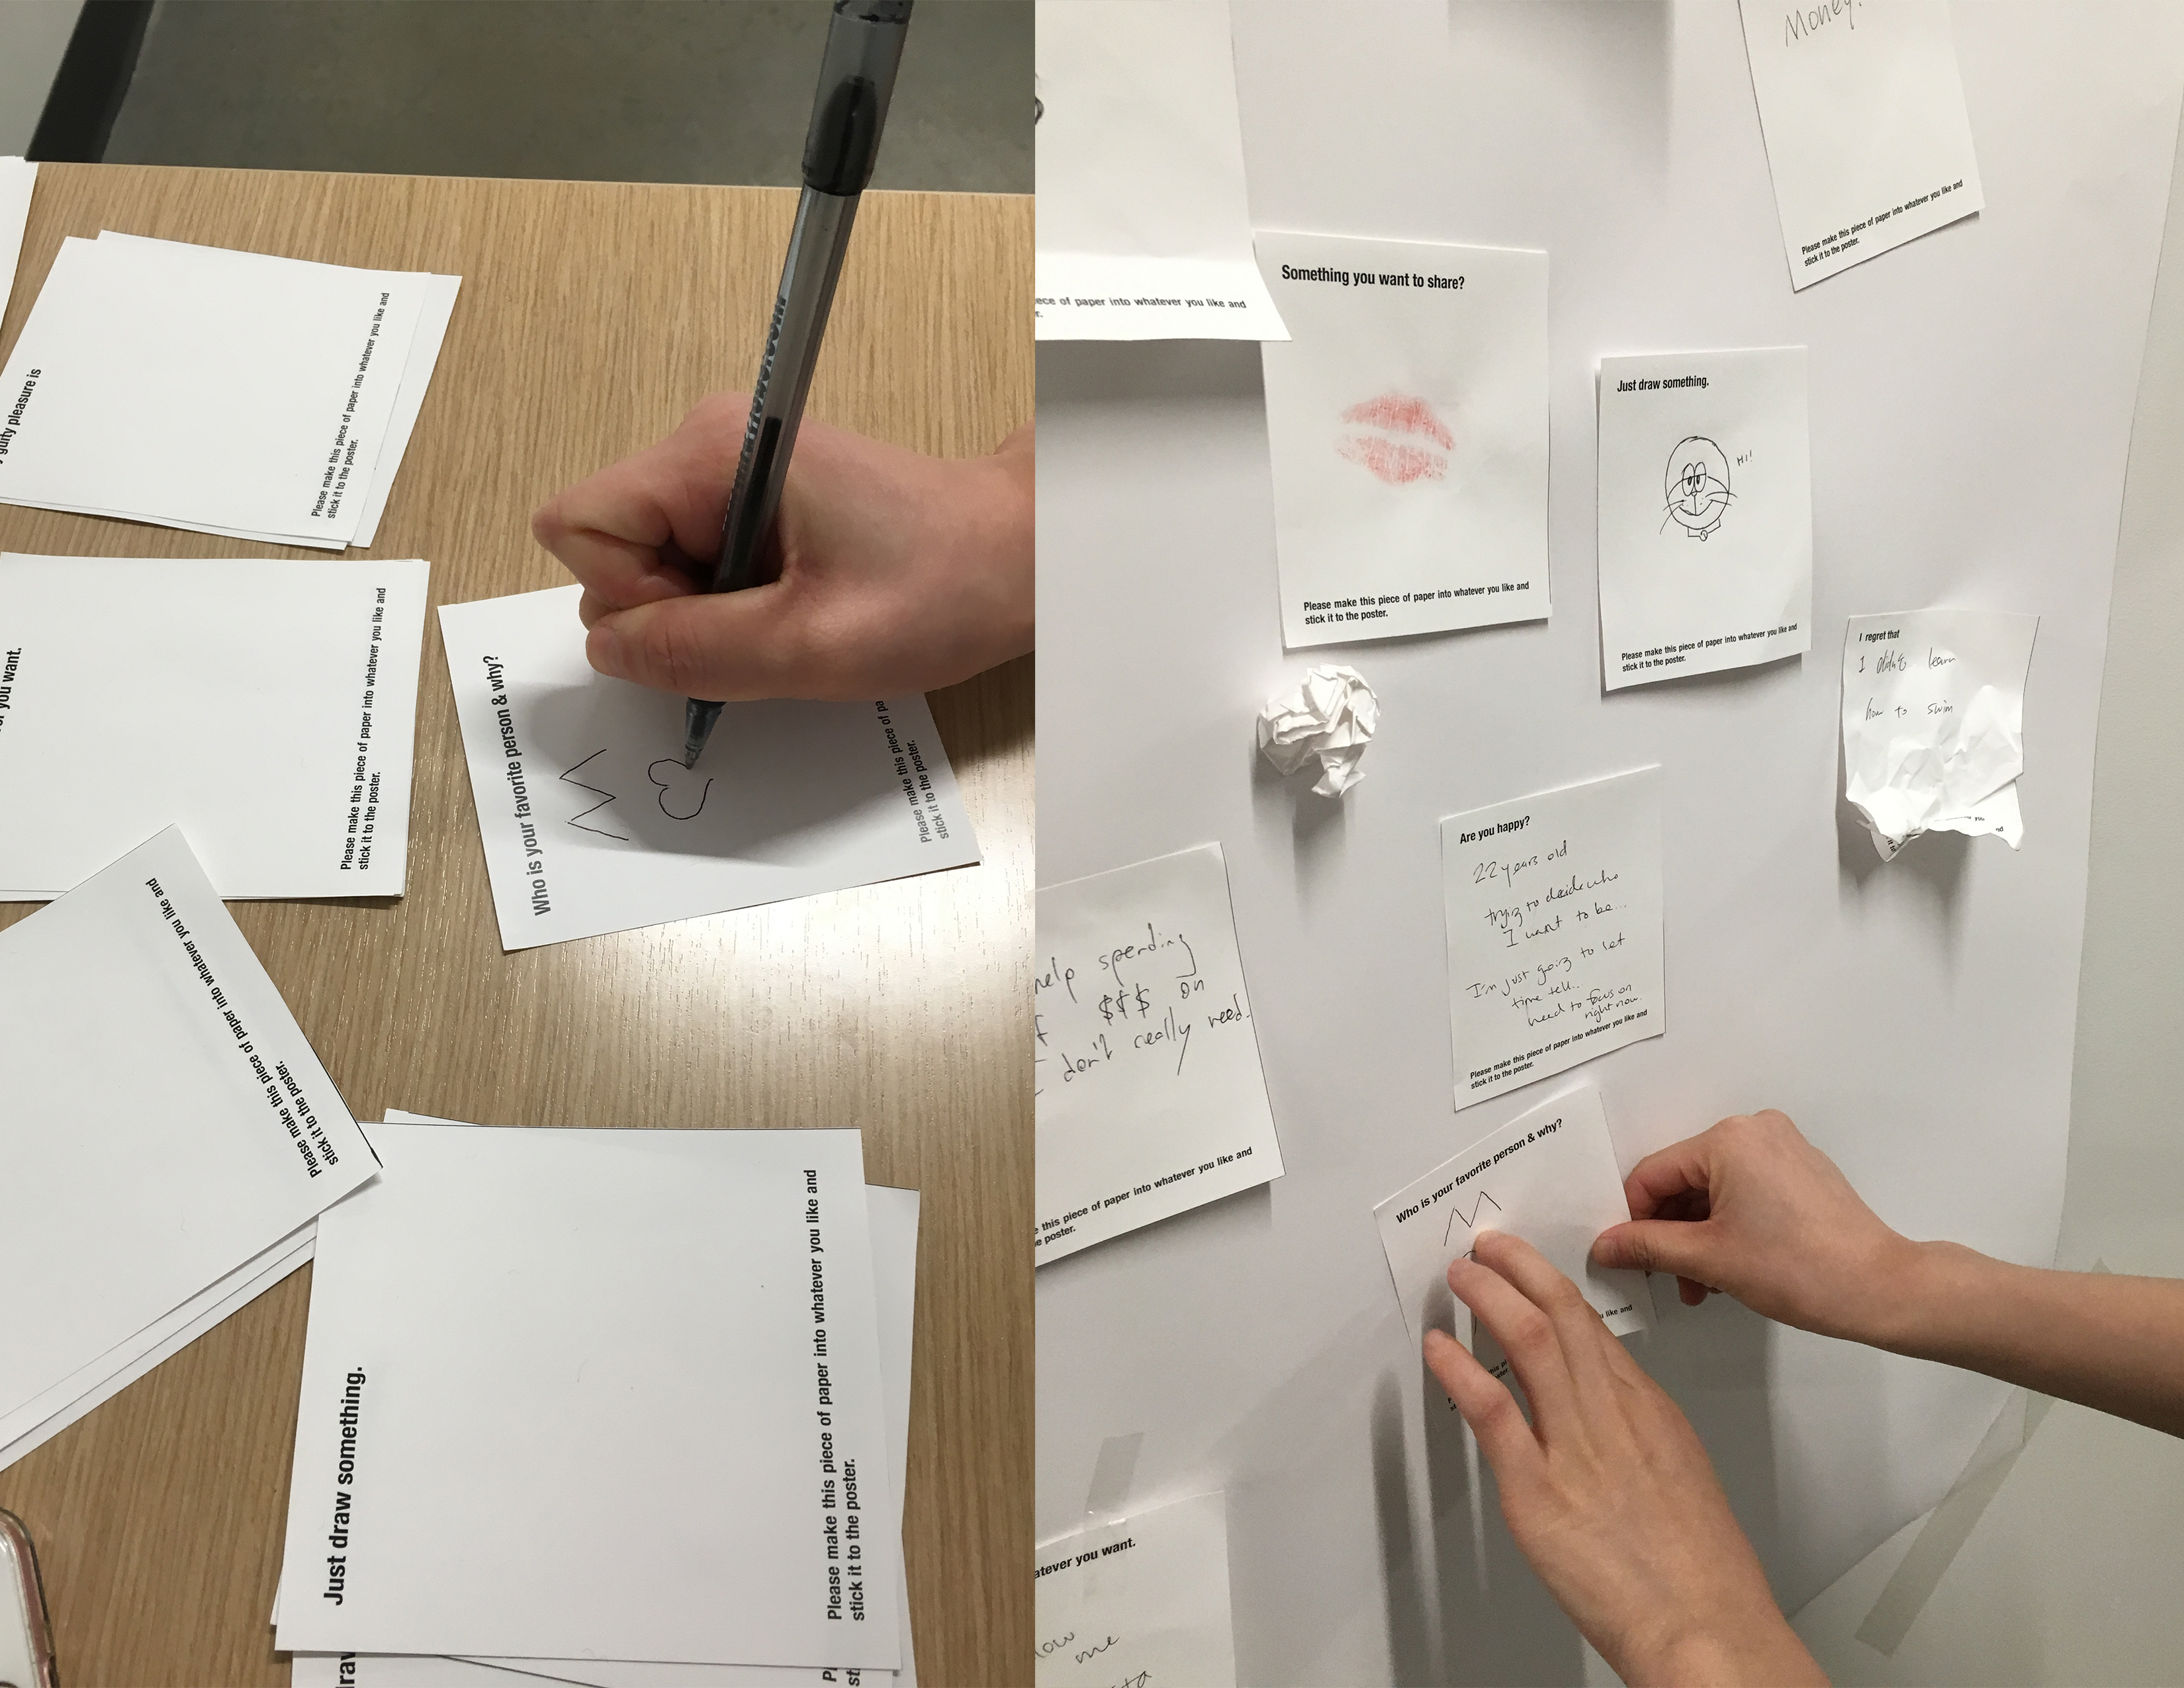 guilty pleasure is
Please make this piece of paper into whatever you like and
stick it to the poster.
you want.
Please make this piece of paper into whatever you like and
stick it to the poster.
Who is your favorite person & why?
M
Please make this piece of pa
stick it to the poster.
Please make this piece of paper into whatever you like and
stick it to the poster.
Just draw something.
Please make this piece of paper into whatever you like and
stick it to the poster.
Money!
Please make this piece of paper into whatever you like and
stick it to the poster.
ece of paper into whatever you like and
r.
Something you want to share?
Please make this piece of paper into whatever you like and
stick it to the poster.
Just draw something.
Hi!
Please make this piece of paper into whatever you like and
stick it to the poster.
I regret that
I didn't learn
how to swim
Are you happy?
22 years old
trying to decide who
I want to be...
I'm just going to let
time tell..
need to focus on
right now.
Please make this piece of paper into whatever you like and
stick it to the poster.
help spending
$$$ on
don't really need.
this piece of paper into whatever you like and
e poster.
Who is your favorite person & why?
M
like and
atever you want.
me